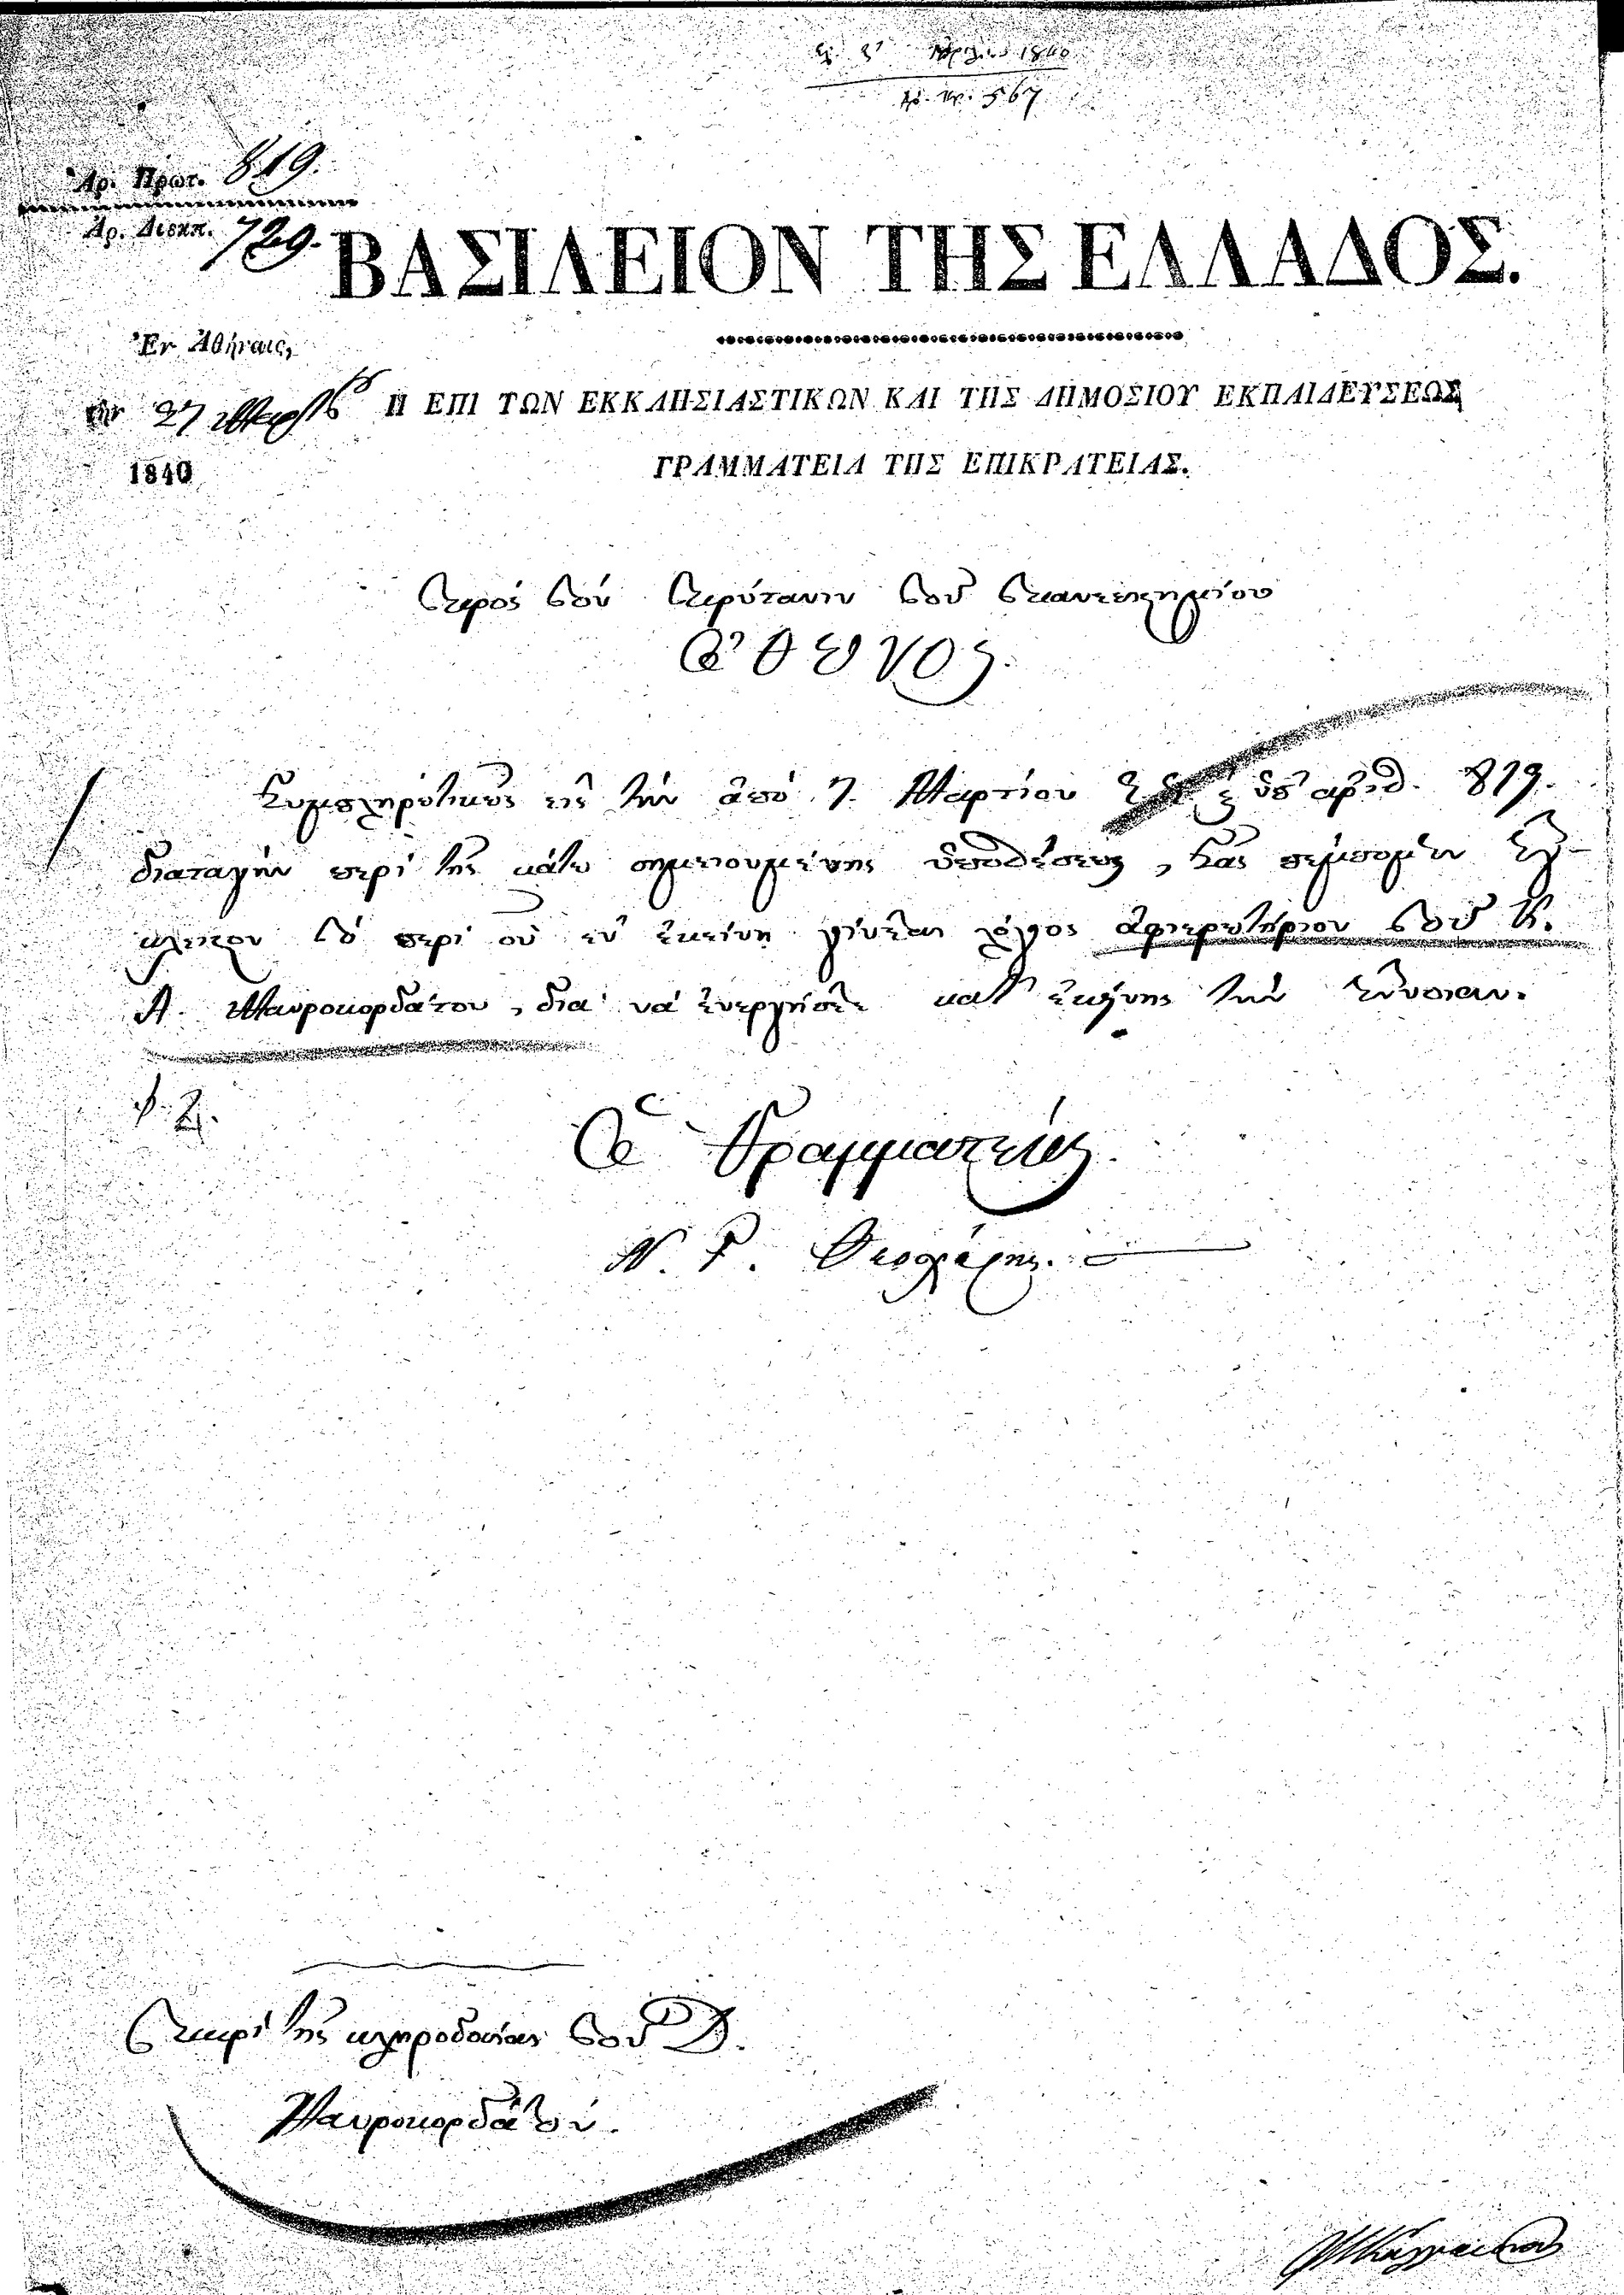 Ἀπριλίου 1840
Ἀρ. Πρ. 567
Ἀρ. Πρωτ. 819.
Ἀρ. Διεκπ. 729.
ΒΑΣΙΛΕΙΟΝ ΤΗΣ ΕΛΛΑΔΟΣ.
Ἐν Ἀθήναις,
τὴν 27 Μαρτίου
1840
Η ΕΠΙ ΤΩΝ ΕΚΚΛΗΣΙΑΣΤΙΚΩΝ ΚΑΙ ΤΗΣ ΔΗΜΟΣΙΟΥ ΕΚΠΑΙΔΕΥΣΕΩΣ
ΓΡΑΜΜΑΤΕΙΑ ΤΗΣ ΕΠΙΚΡΑΤΕΙΑΣ.
Πρὸς τὸν Πρύτανιν τοῦ Πανεπιστημίου
Ὄθωνος.
Συμπληρωτικῶς εἰς τὴν ἀπὸ 7. Μαρτίου ὑπ' ἀριθ. 819.
διαταγὴν περὶ τῆς κάτω σημειουμένης ὑποθέσεως, Σᾶς πέμπομεν ἔγ-
κλειστον τὸ περὶ οὗ ἐν ἐκείνῃ γίνεται λόγος ἀφιερωτήριον τοῦ Κ.
Α. Μαυροκορδάτου, διὰ νὰ ἐνεργήσετε κατ' ἐκείνης τὴν ἔννοιαν.
Ὁ Γραμματεύς.
Ν. Γ. Θεοχάρης.
Περὶ τῆς κληροδοσίας τοῦ Δ.
Μαυροκορδάτου.